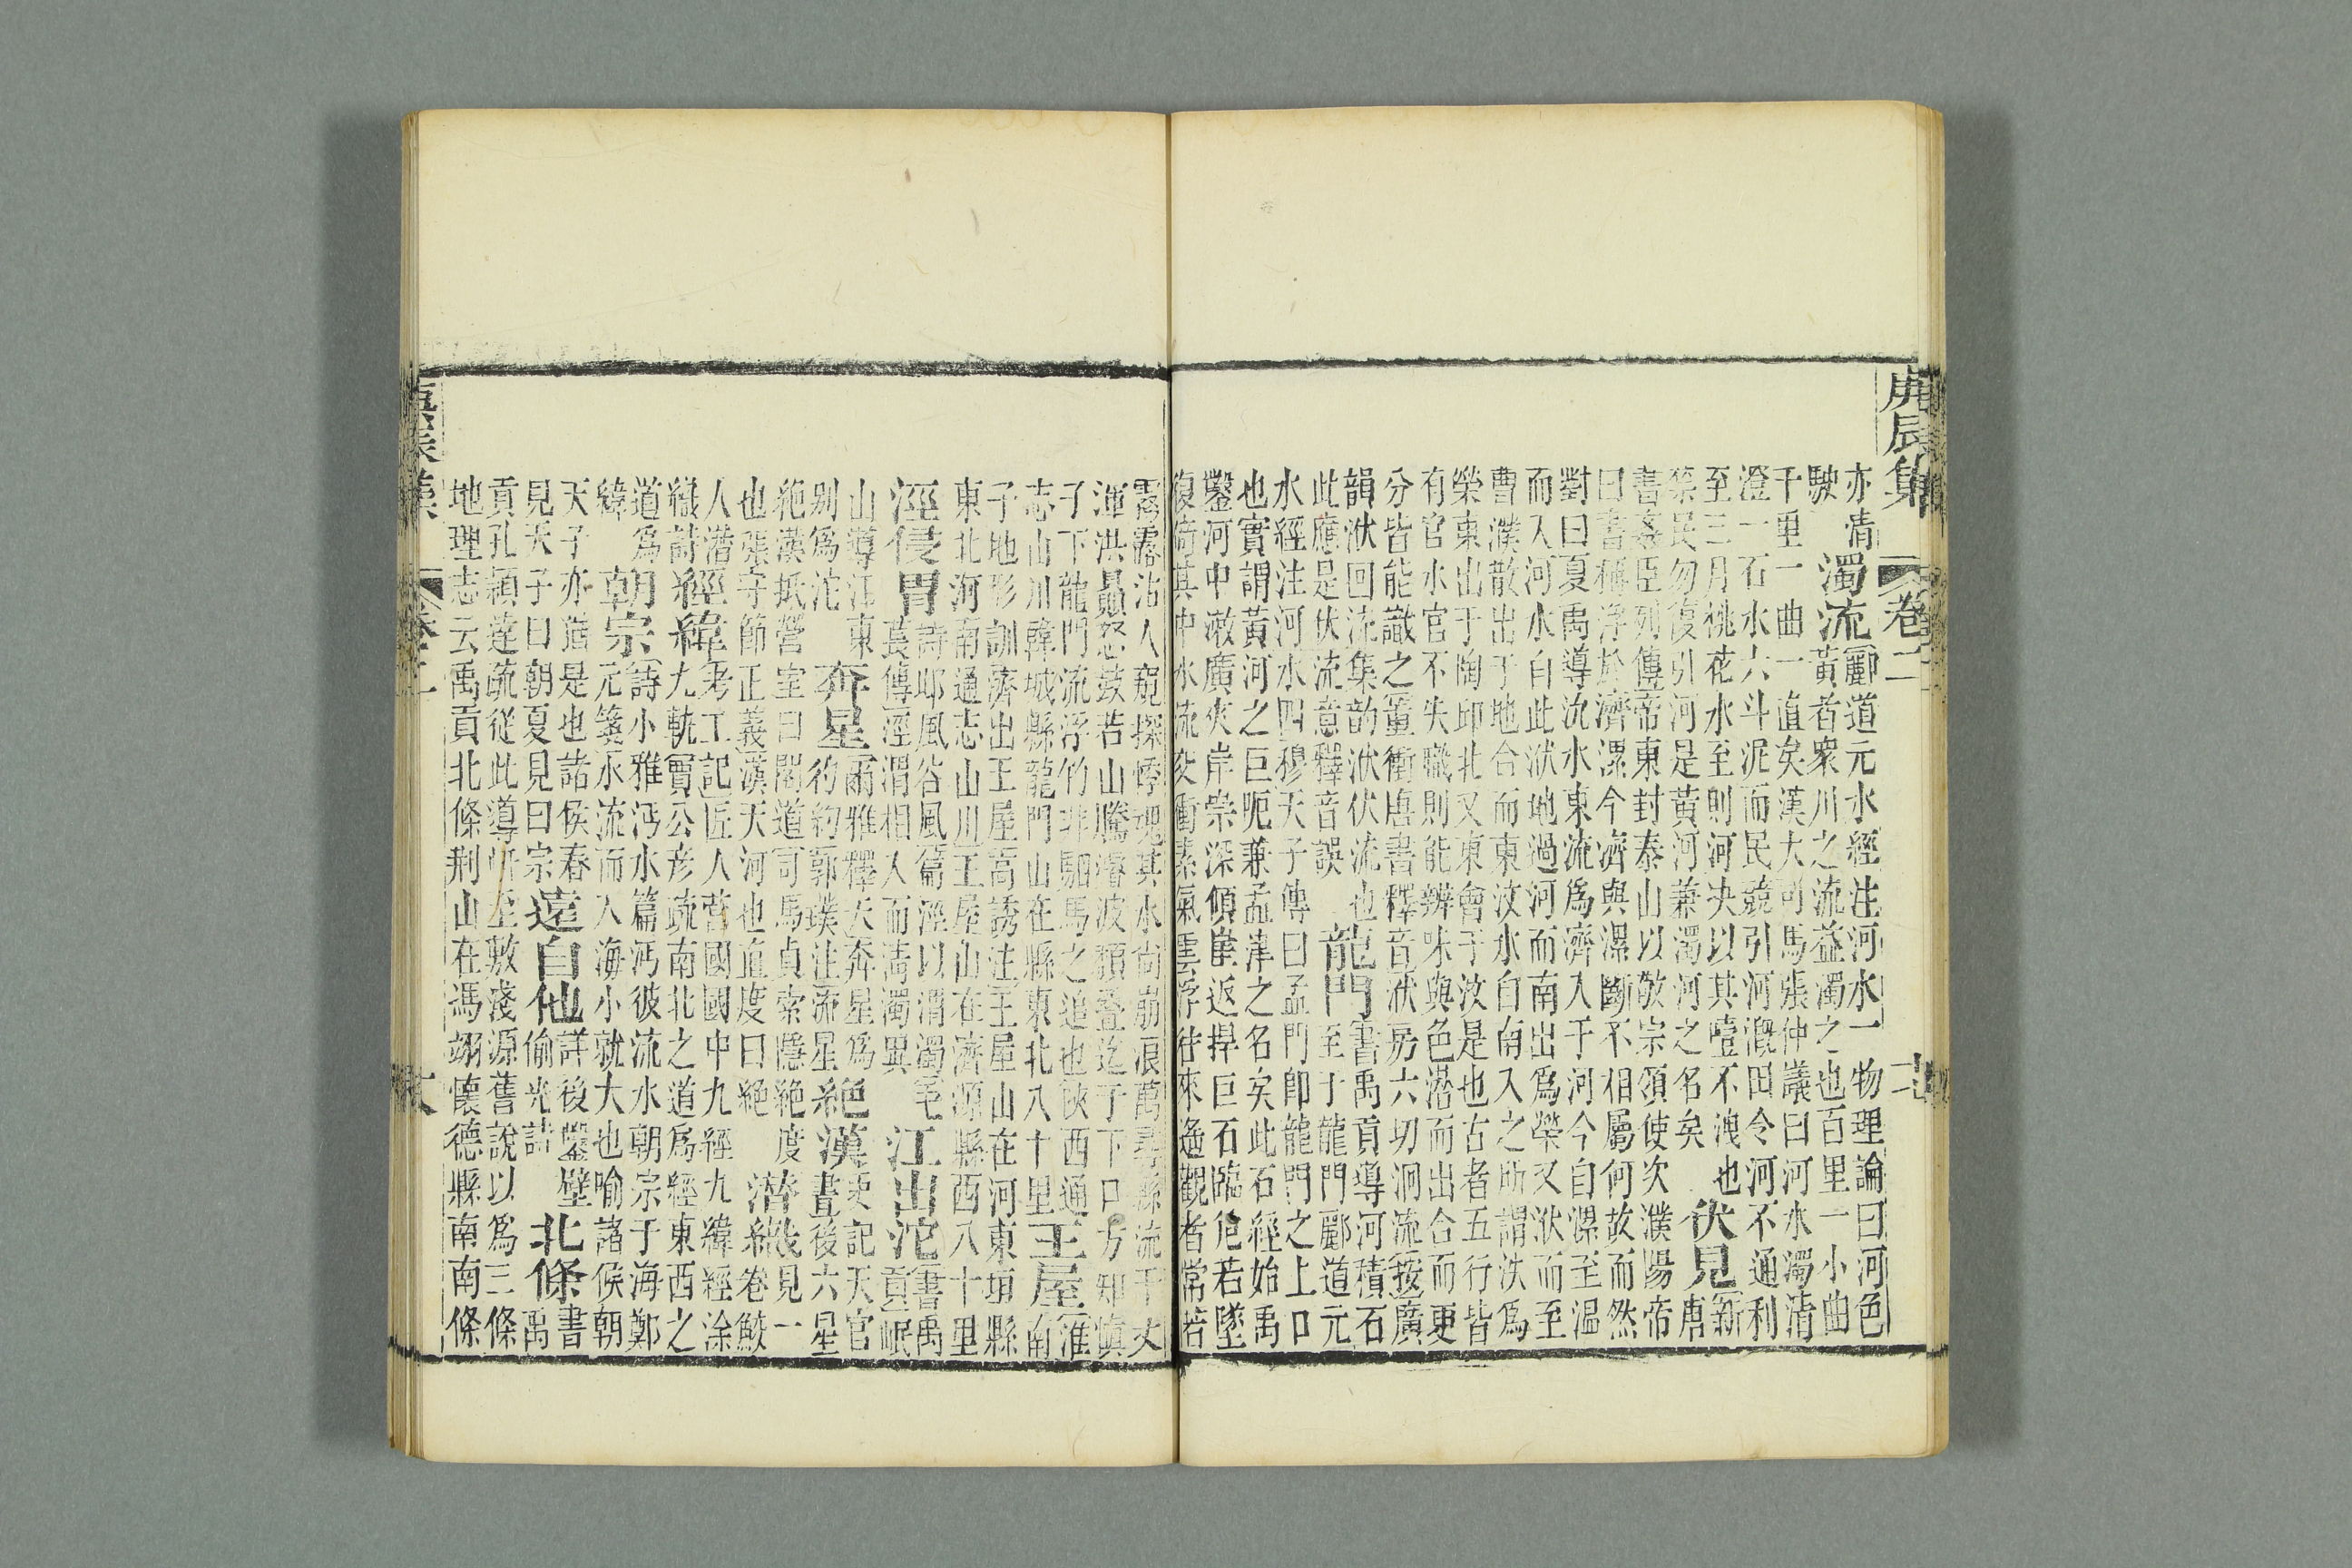 庚辰集
卷二
亦清
駛
濁流
酈道元水經注河水一物理論曰河色
黃者衆川之流益濁之也百里一小曲
千里一曲一直矣漢大司馬張仲議曰河水濁清
澄一石水六斗泥而民競引河溉田令河不通利
至三月桃花水至則河決以其噎不洩也
禁民勿復引河是黃河兼濁河之名矣
伏見
新唐
書姦臣列傳帝東封泰山以敬宗領使次濮陽帝
曰書稱浮於濟漯今濟與漯斷不相屬何故而然
對曰夏禹導沇水東流爲濟入于河今自漯至溫
而入河水自此洑地過河而南出爲滎又洑而至
曹濮散出于地合而東汶水自南入之所謂泆爲
滎東出于陶邱北又東會于汶是也古者五行皆
有官水官不失職則能辨味與色潛而出合而更
分皆能識之董衝唐書釋音洑房六切洄流按廣
韻洑回流集韵洑伏流也
此應是伏流意釋音誤
龍門
書禹貢導河積石
至于龍門酈道元
水經注河水四穆天子傳曰孟門卽龍門之上口
也實謂黃河之巨呃兼孟津之名矣此石經始禹
鑿河中漱廣夾岸崇深傾崖返捍巨石臨危若墜
復倚其中水流交衝素氣雲浮往來遙觀者常若
霧露沾人窺深悸魄其水尚崩浪萬尋縣流千丈
渾洪贔怒鼓若山騰濬波頹疊迄于下口方知慎
子下龍門流浮竹非駟馬之追也陜西通
志山川韓城縣龍門山在縣東北八十里
王屋
淮南
子地形訓濟出王屋高誘注王屋山在河東垣縣
東北河南通志山川王屋山在濟源縣西八十里
涇侵胃
詩邶風谷風篇涇以渭濁毛
萇傳涇渭相入而淸濁異
江出沱
書禹
貢岷
山導江東
别爲沱
奔星
爾雅釋天奔星爲
彴約郭璞注流星
絕漢晝
史記天官
後六星
絶漢抵營室曰閣道司馬貞索隱絶度
也張守節正義漢天河也直度曰絶
潛織
幾見一
卷鮫
人潛
織詩
經緯
考工記匠人營國國中九經九緯經涂
九軌賈公彥疏南北之道爲經東西之
道爲
緯
朝宗
詩小雅沔水篇沔彼流水朝宗于海鄭
元箋水流而入海小就大也喻諸侯朝
天子亦猶是也諸侯春
見天子曰朝夏見曰宗
遠自他
詳後鑿壁
偷光詩
北條
書
禹
貢孔穎達疏從此導岍至敷淺源舊說以爲三條
地理志云禹貢北條荆山在馮翊懷德縣南南條